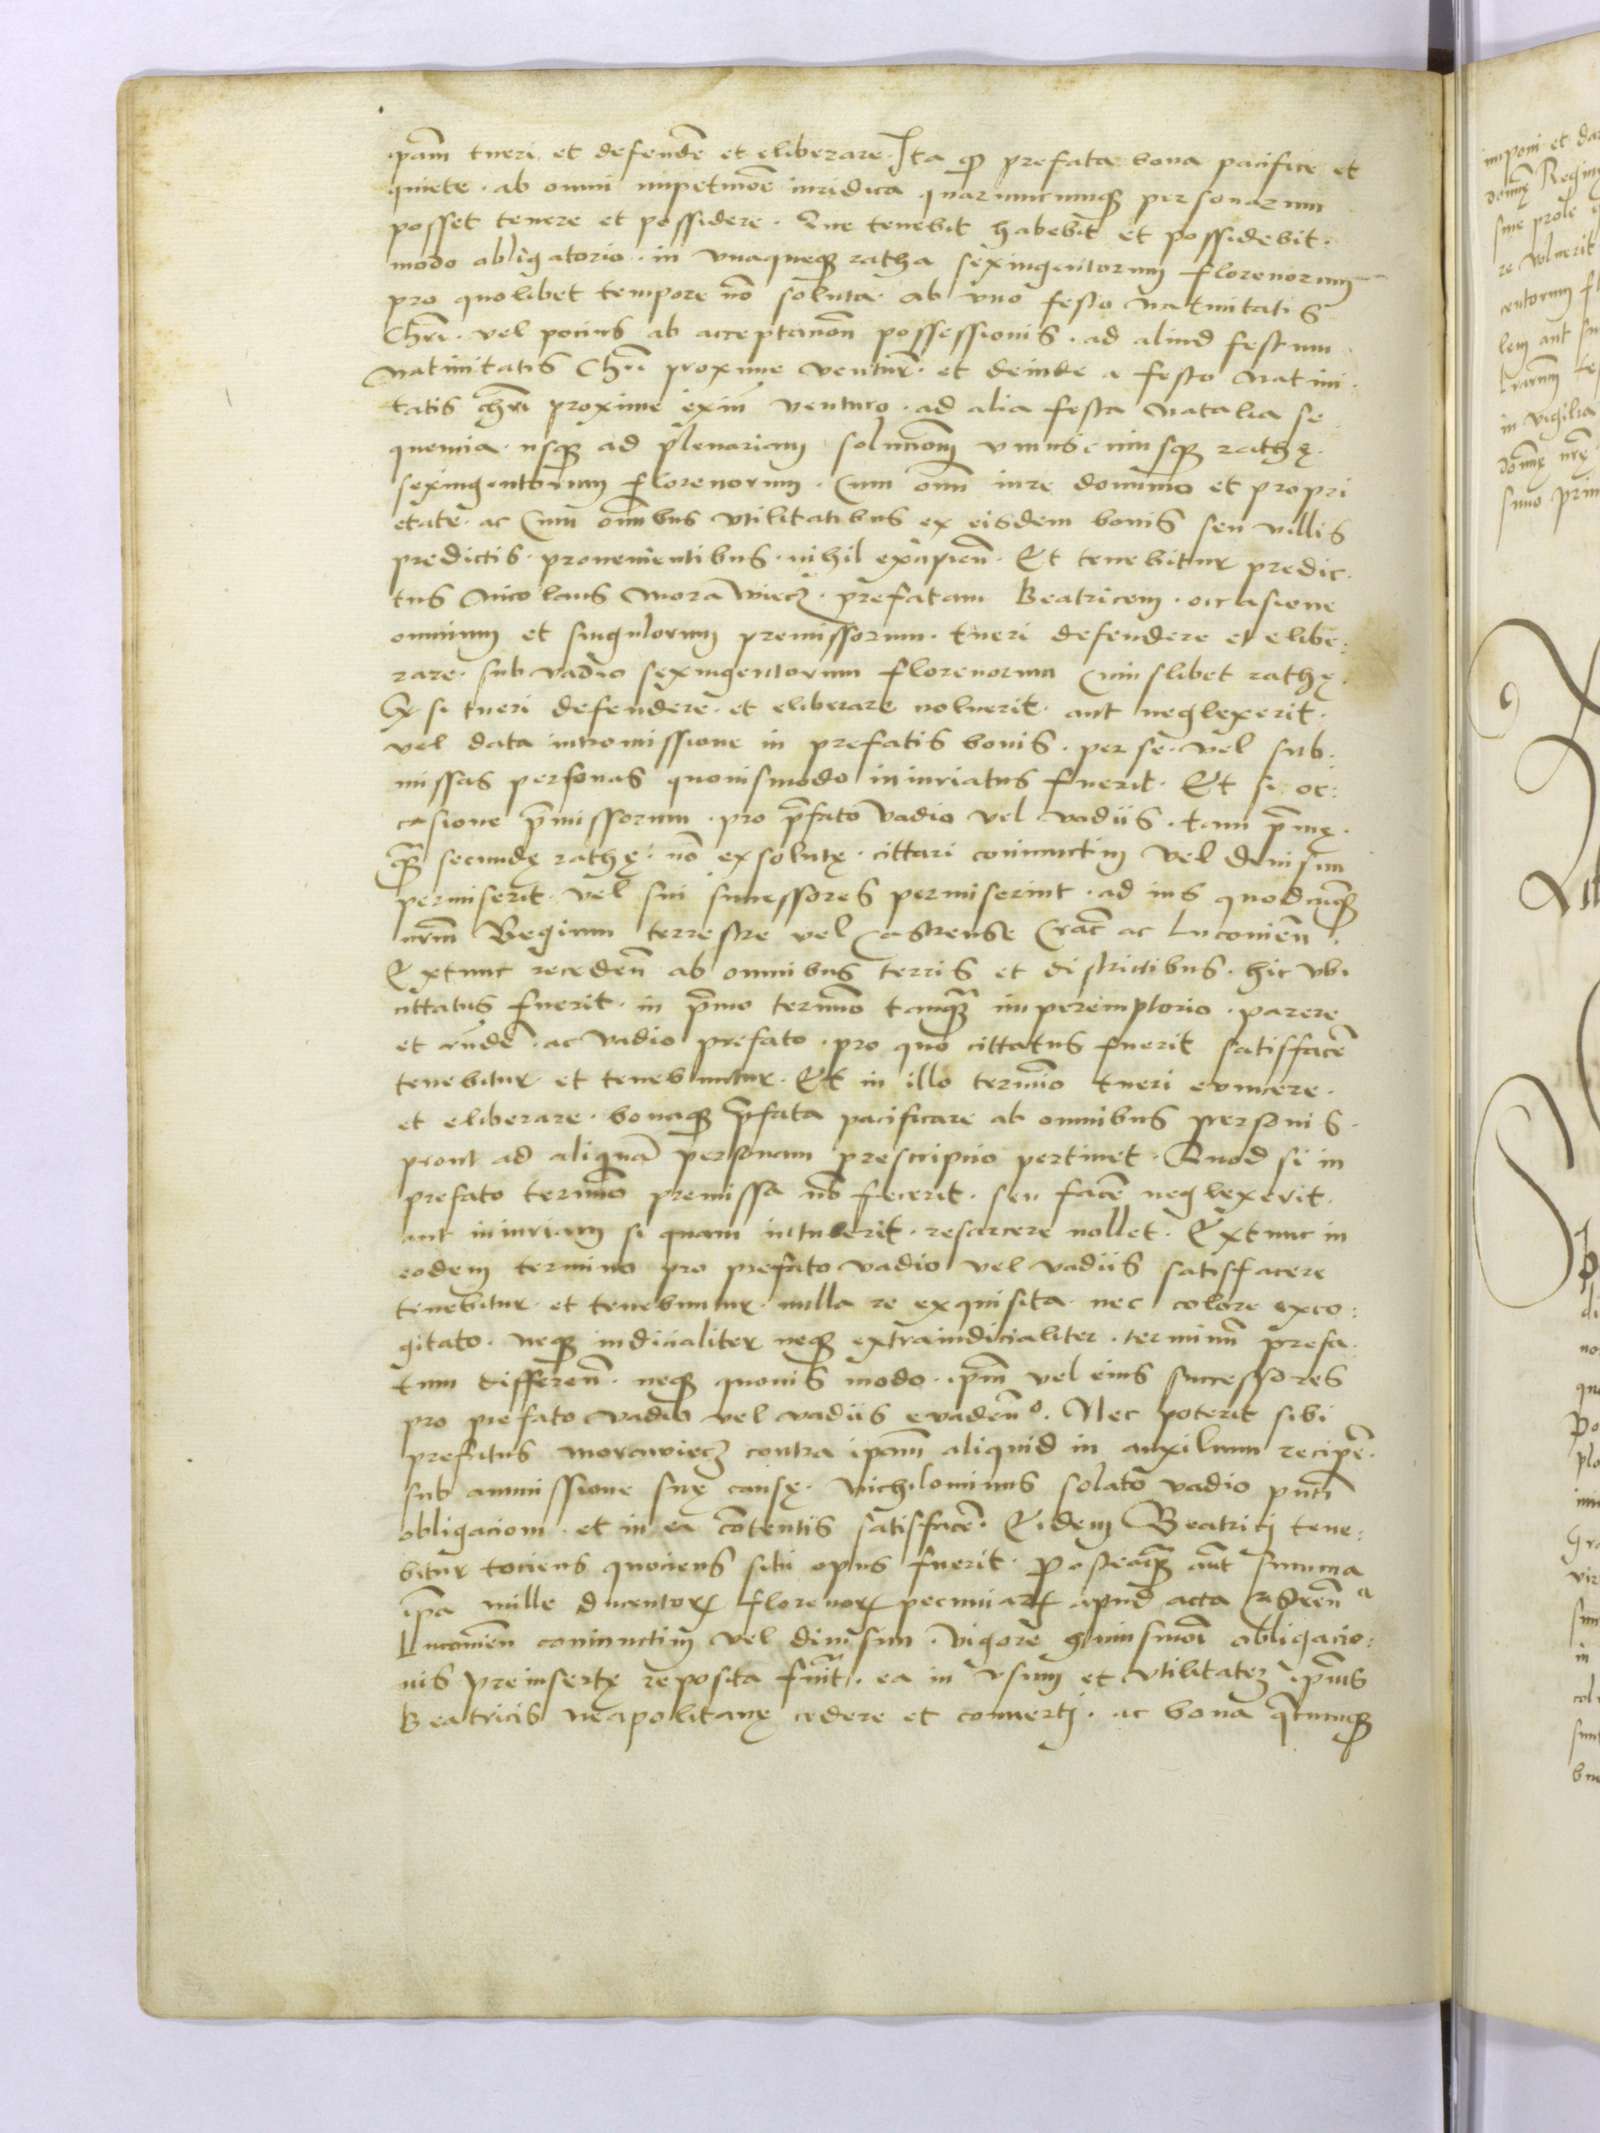 ipam tueri et defende et eliberare. Ita qp prefata bona pacifice et
quiete. ab omni impetitioe iuridica quarumcumqȝ personarum
posset tenere et possidere. Que tenebit habebit et possidebit.
modo obligatorio. in unaqueqȝ ratha sexingentorum florenorum
pro quolibet tempore no soluta. ab uno festo Natiuitatis
Chri. vel pocius ab acceptanon possessionis. ad aliud festum
Natiuitatis Chri proxime ventur. et deinde a festo Natiui:
tatis chri proxime exin venturo. ad alia festa Natalia se:
quencia. usqȝ ad plenariam solucionem uniuscuiusqȝ rathę.
sexingentorum florenorum. Cum omni iure dominio et propri
etate. ac cum omibus utilitatibus ex eisdem bonis seu villis
predictis. prouenientibus. nihil excipien. Et tenebitur predic:
tus Nicolaus Morawiecz. prefatam Beatricem. occasione
omnium et singulorum premissorum. tueri defendere et elibe:
rare. sub vadio sexingentorum florenorum Cuiuslibet rathę.
si tueri defendere. et eliberare noluerit. aut neglexerit.
vel data intromissione in prefatis bonis. per se. vel sub:
missas personas quouismodo iniuriatus fuerit. Et si oc:
casione pmissorum. pro pfato vadio vel vadiis. tam primę.
qȝ secundę rathę. no exsolutę. cittari coniunctim vel diuisim
permiserit. vel sui successores permiserint. ad ius quodcuqȝ
nrm Regium terrestre vel castrense Crac ac Luconien.
Extunc receden ab omnibus terris et districtibus. hic ubi
cittatus fuerit. in pmo termino tamqȝ in peremptorio. parere
et rnde. ac vadio prefato. pro quo cittatus fuerit satisface
tenebitur. et tenebuntur. Et in illo termino tueri euincere.
et eliberare. bonaqȝ pfata pacificare ab omnibus personis.
prout ad aliqua personam prescripcio pertinet. Quod si in
prefato termino premissa no fecerit. seu face neglexerit.
aut iniuriam si quam intulerit. resarcere nollet. Extunc in
eodem termino pro prefato vadio vel vadiis satisfacere
tenebitur. et tenebuntur. nulla re exquisita. nec colore exco:
gitato. neqȝ iudicialiter neqȝ extraiudicialiter. terminu prefa:
tum differen. neqȝ quouis modo. ipm vel eius successores
pro prefato vadio vel vadiis evaden. Nec poterit sibi
prefatus Morawiecz contra ipam aliquid in auxilium recipe.
sub ammissione suę causę. Nichilominus soluto vadio pnti
obligacioni. et in ea contentis satisface. Eidem Beatrici tene:
bitur tociens quociens sibi opus fuerit. Posteaqȝ aut summa
ipa mille ducentor florenor pecuniar apud acta castren
Luconien coniunctim vel diuisim. vigore huiusmoi obligacio:
nis preinsertę reposita fuit. ea in usum et utilitatez ipius
Beatricis Neapolitanę cedere et conuerti. ac bona